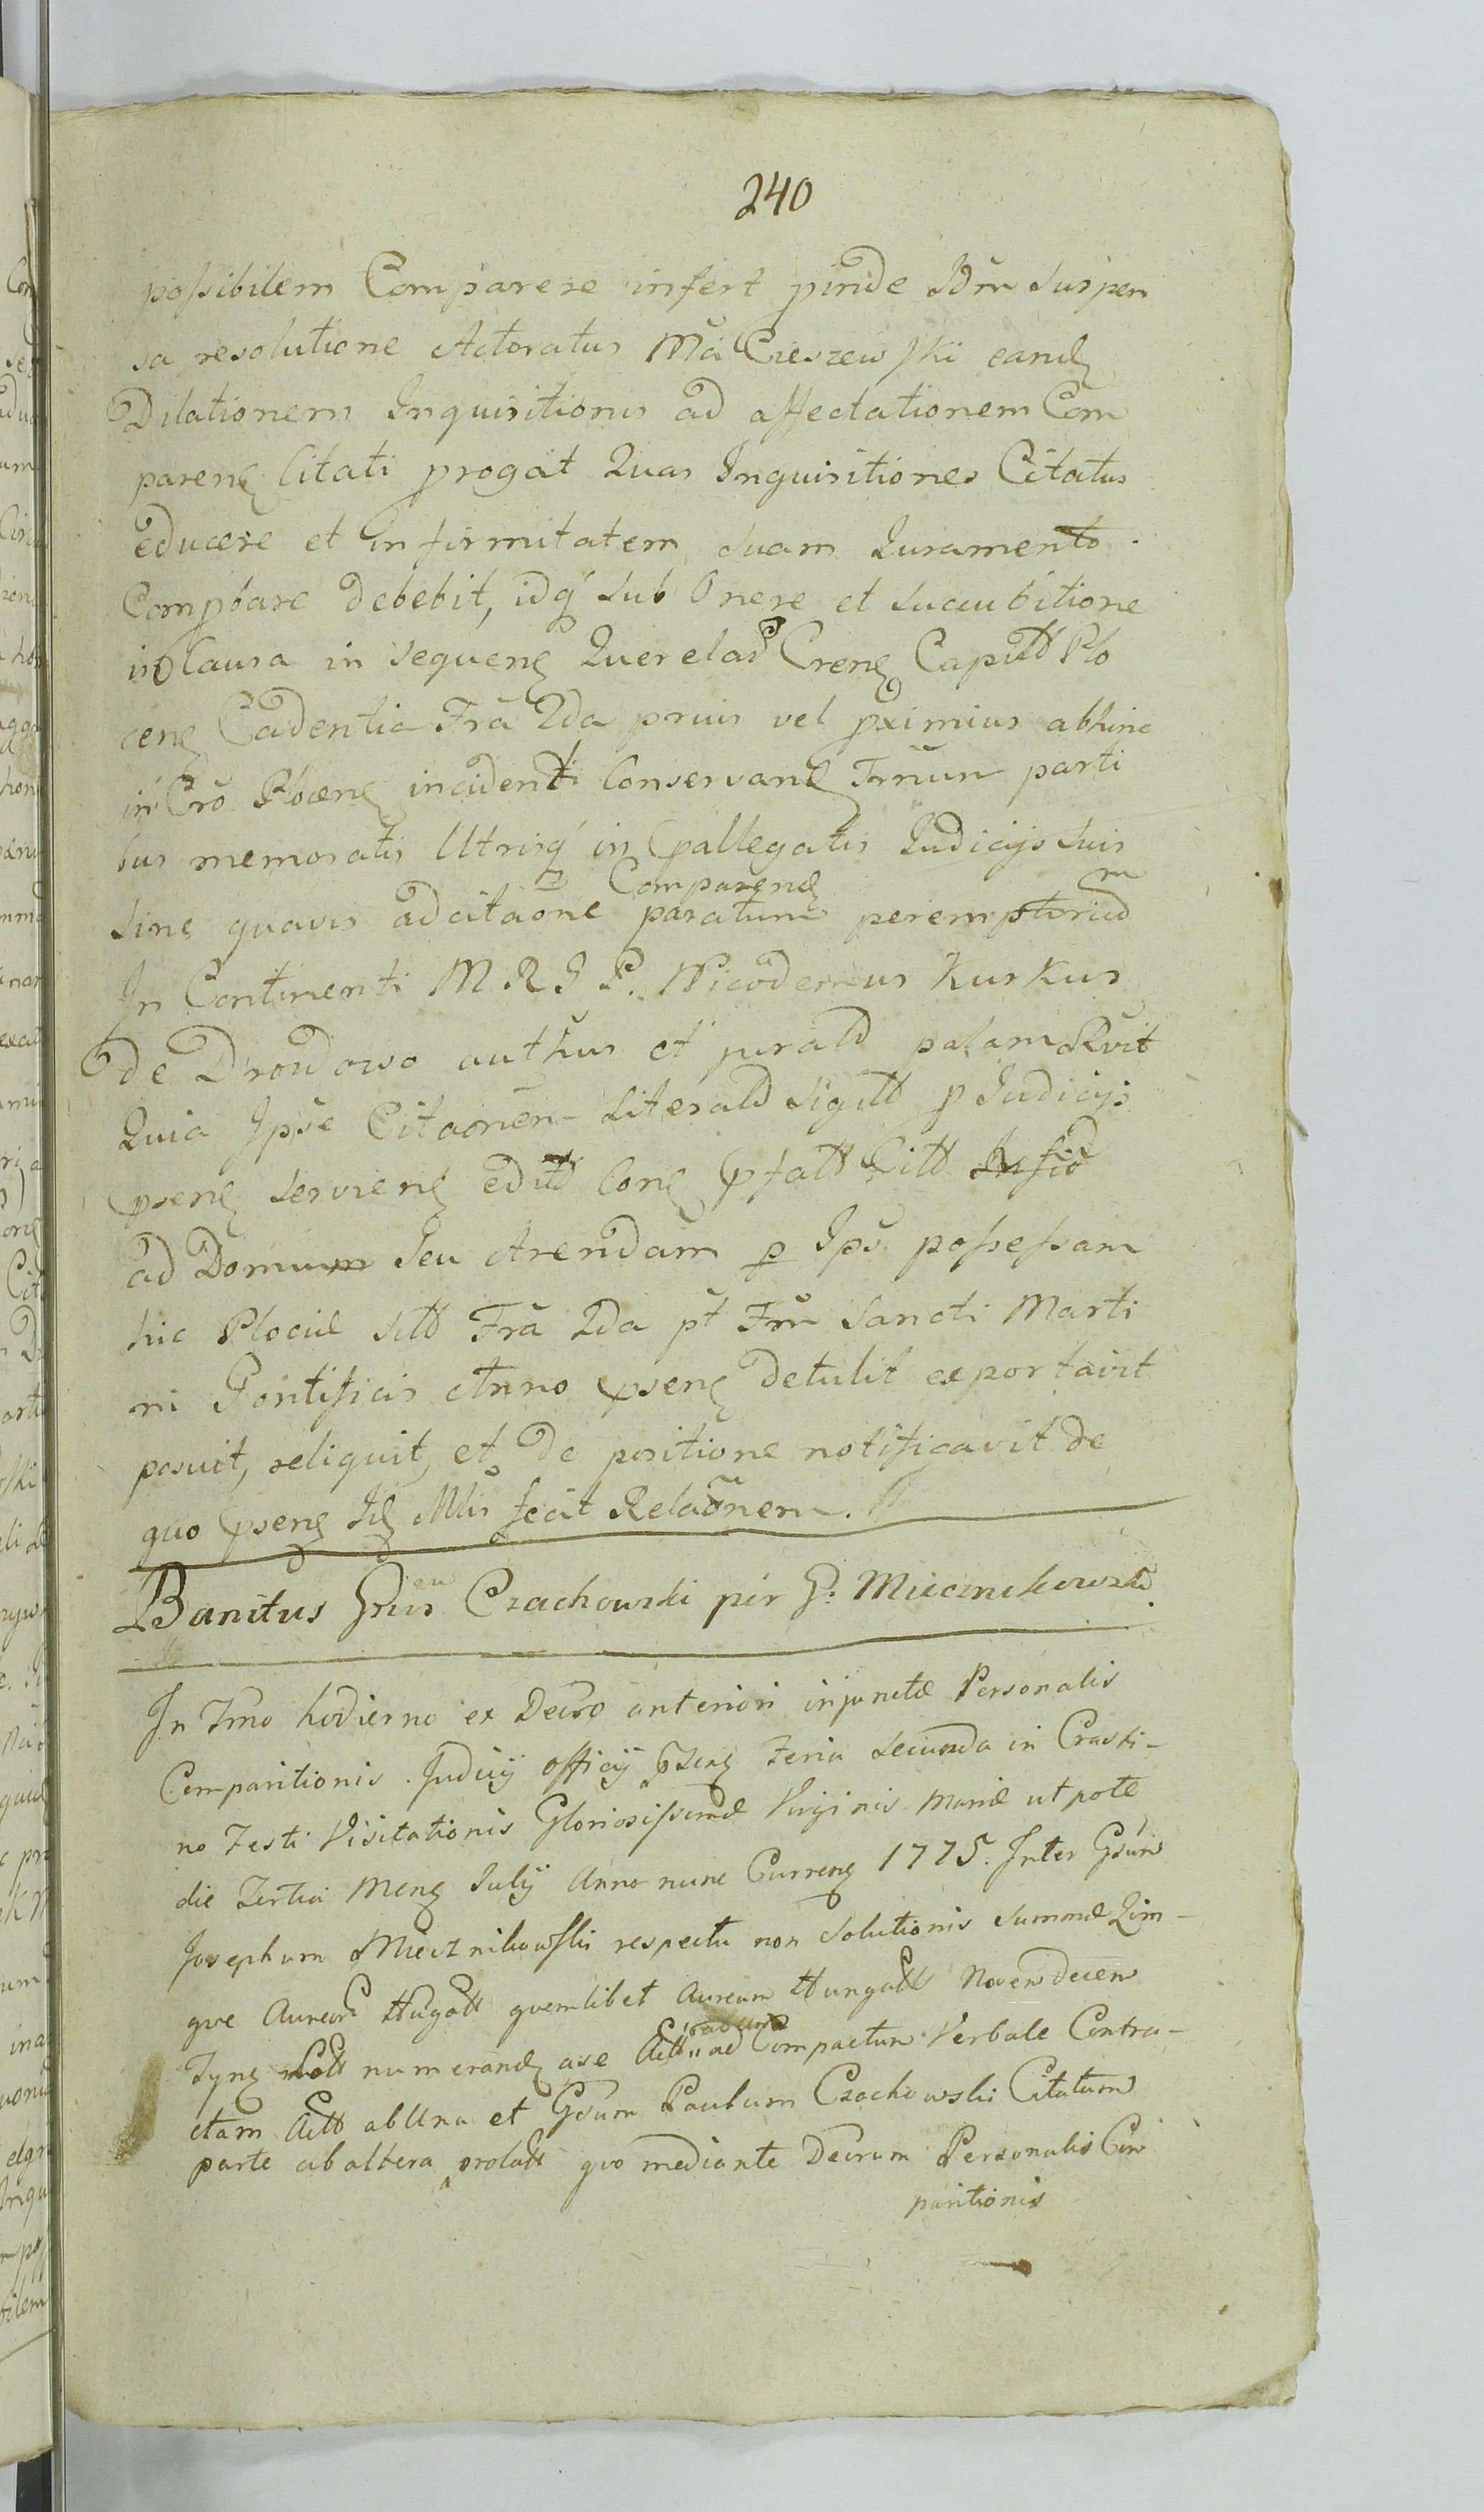 240
possibilem Comparere infert pinde Idm Suspen
sa resolutione Actoratus Mci Cieszewski eand
Dilationem Inquisitionis ad affectationem Com
paren Citati progat Quas Inquisitiones Citatus
educere et infirmitatem suam Juramento
Compbare debebit, idq sub Onere et Succubitione
in Causa in sequen Querelar Cren Capitt Plo
cen Cadentia Fra 2da prius vel pximius abhinc
in Cro Plocen incidenti Conservand Trnun parti
bus memoratis Utrisq in Pallegatis Judicijs Suis
Comparend
sine quavis adcitaone paratum peremptorium
In Continenti M. R. J. P. Nicodemus Kurkus
de Drowowo authus et jurald palam Rvit
Quia Ipse Citaonen Literald Sigill p Judicijs
psen servien edit Con Pfatt Citt
ad Domum Seu Arendam p Ips possessam
hic Plociæ sitt Fra 2da pt Fm Sancti Marti
ni Pontificis Anno psen detulit exportavit
posuit, reliquit, et de positione notificavit de
quo psen Mlis fecit Relaonem.
Banitus Grus Czachowski per G. Miecznikowski.
In Tmo hodierno ex Decro anteriori injunctæ Personalis
Comparitionis Judicij officij psen Feria Secunda in Crasti-
no Festi Visitationis Gloriosissimæ Virginis Mariæ ut pote
die Tertia Mens Julij Anno nunc Curren 1775. Inter Gsum
Josephum Miecznikowski respectu non Solutionis Summæ Quin-
que Aureor Hugatt quemlibet Aureum Hungatt Novendecem
Tynf Poll numerand ase Actt ad Compactum Verbale Contra-
ctam Actt ab Una et Gsum Paulum Czachowski Citatum
parte ab altera prolatt quo mediante Decrum Personalis Com
paritionis